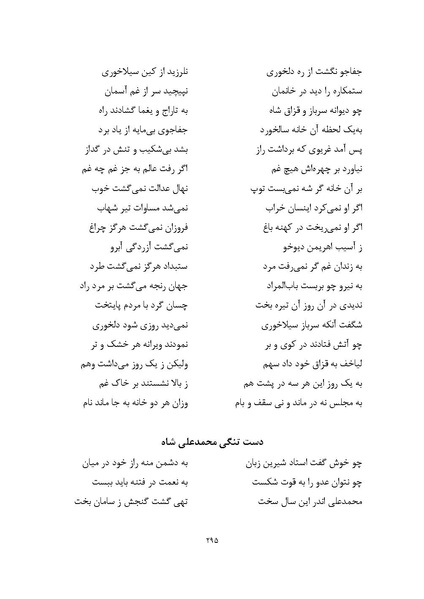 جفاجو نگشت از ره دلخوری نلرزید از کین سیلاخوری
ستمکاره را دید در خانمان نپیچید سر از غم آسمان
چو دیوانه سرباز و قزاق شاه به تاراج و یغما گشادند راه
به‌یک لحظه آن خانه سالخورد جفاجوی بی‌مایه از یاد برد
پس آمد غریوی که برداشت راز بشد بی‌شکیب و تنش در گداز
نیاورد بر چهره‌اش هیچ غم اگر رفت عالم به جز غم چه غم
بر آن خانه گر شه نمی‌بست توپ نهال عدالت نمی‌گشت خوب
اگر او نمی‌کرد اینسان خراب نمی‌شد مساوات تیر شهاب
اگر او نمی‌ریخت در کهنه باغ فروزان نمی‌گشت هرگز چراغ
ز آسیب اهریمن دیوخو نمی‌گشت آزردگی آبرو
به زندان غم گر نمی‌رفت مرد ستبداد هرگز نمی‌گشت طرد
به نیرو چو بربست باب‌المراد جهان رنجه می‌گشت بر مرد راد
ندیدی در آن روز آن تیره بخت چسان گرد با مردم پایتخت
شگفت آنکه سرباز سیلاخوری نمی‌دید روزی شود دلخوری
چو آتش فتادند در کوی و بر نمودند ویرانه هر خشک و تر
لیاخف به قزاق خود داد سهم ولیکن ز یک روز می‌داشت وهم
به یک روز این هر سه در پشت هم ز بالا نشستند بر خاک غم
به مجلس نه در ماند و نی سقف و بام وزان هر دو خانه به جا ماند نام
دست تنگی محمدعلی شاه
چو خوش گفت استاد شیرین زبان به دشمن منه راز خود در میان
چو نتوان عدو را به قوت شکست به نعمت در فتنه باید ببست
محمدعلی اندر این سال سخت تهی گشت گنجش ز سامان بخت
۲۹۵